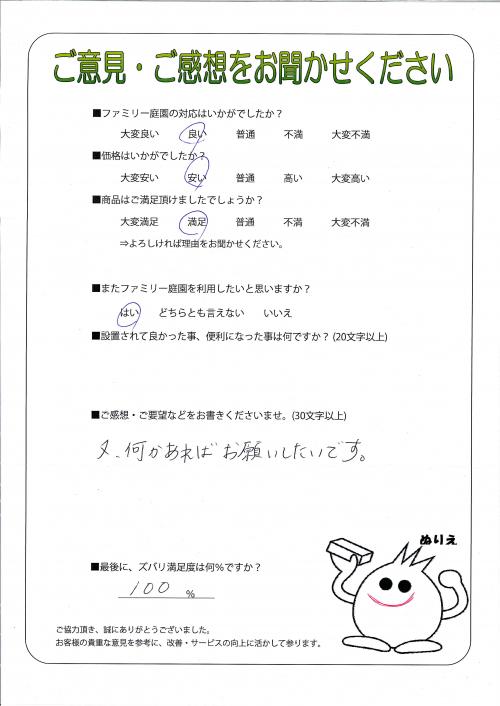 ご意見・ご感想をお聞かせください
■ファミリー庭園の対応はいかがでしたか？
大変良い 良い 普通 不満 大変不満
■価格はいかがでしたか？
大変安い 安い 普通 高い 大変高い
■商品はご満足頂けましたでしょうか？
大変満足 満足 普通 不満 大変不満
⇒よろしければ理由をお聞かせください。
■またファミリー庭園を利用したいと思いますか？
はい どちらとも言えない いいえ
■設置されて良かった事、便利になった事は何ですか？(20文字以上)
■ご感想・ご要望などをお書きくださいませ。(30文字以上)
又、何かあればお願いしたいです。
ぬりえ
■最後に、ズバリ満足度は何％ですか？
100 %
ご協力頂き、誠にありがとうございました。
お客様の貴重な意見を参考に、改善・サービスの向上に活かして参ります。